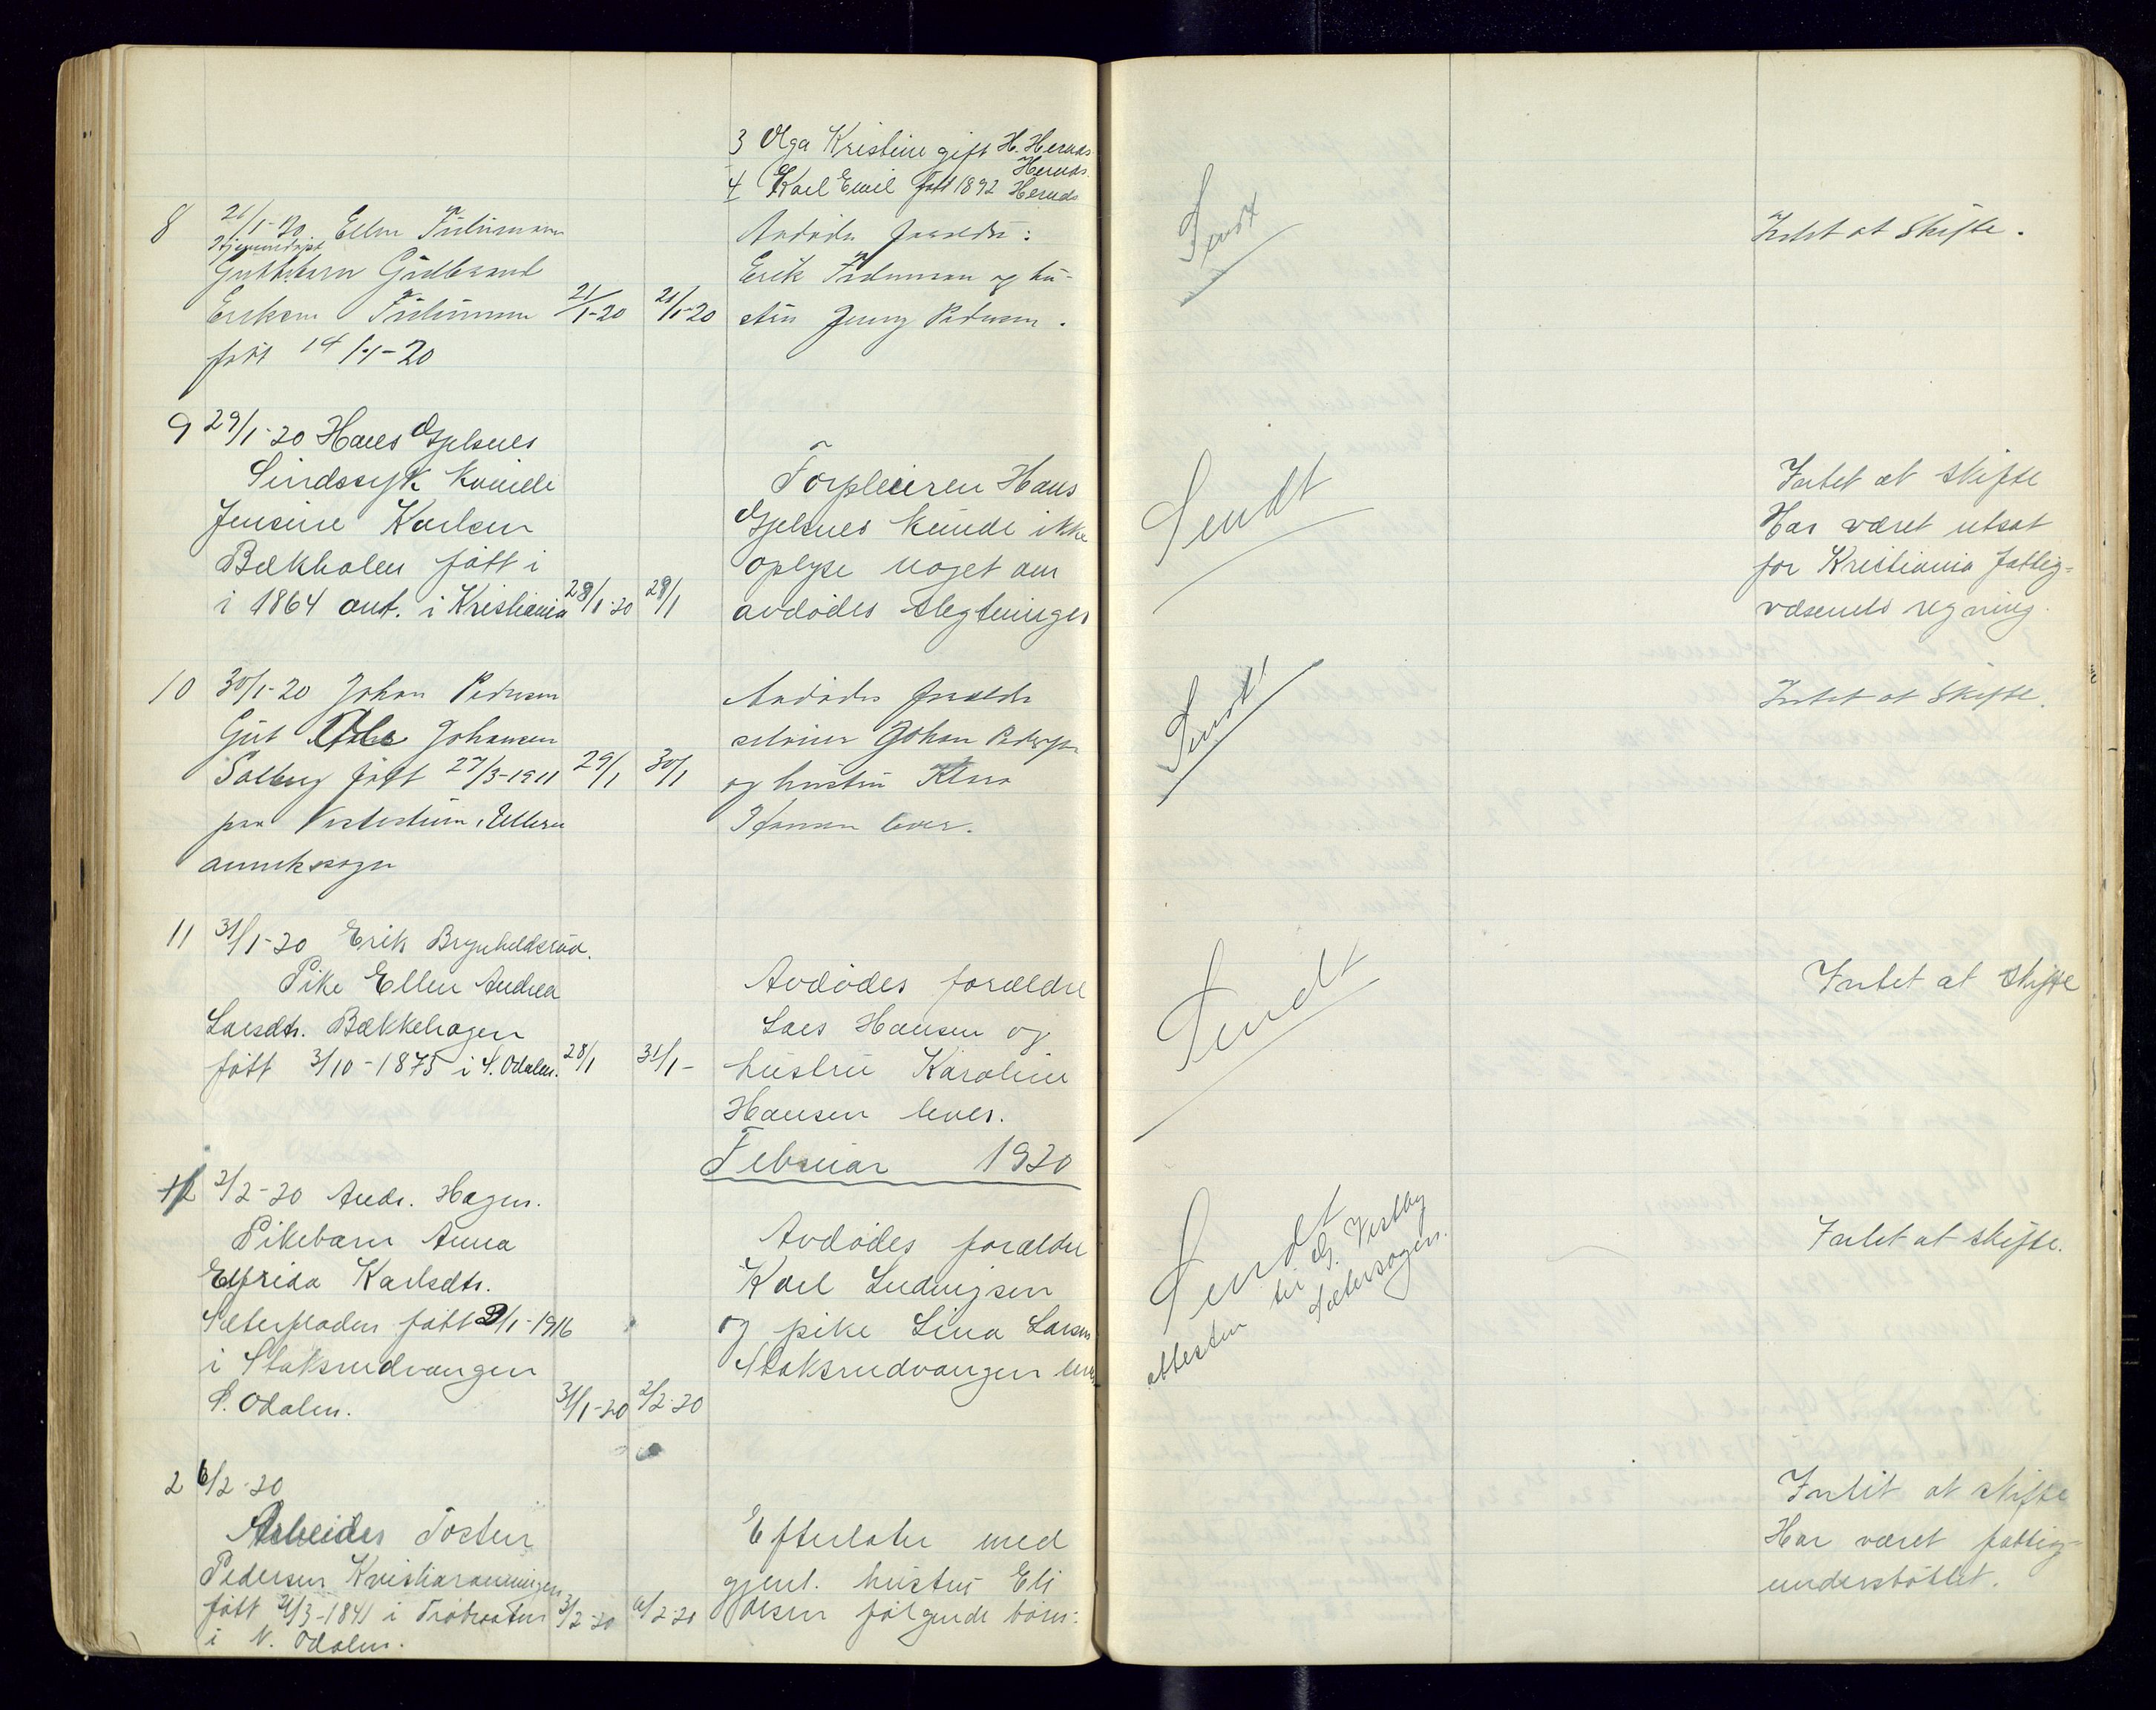 3 Olga Kristine gift H. Hernes
Hernes.
4 Karl Emil født 1892 Hernes
8 21/1-20 Ellen
Hjemmedøpt
Guttebarn Gudbrand
Eriksen 21/1-20 21/1-20
født 14/1-20
Avdødes forældre:
Erik og hu-
stru Jenny Pedersen.
Sendt
Intet at skifte.
9 29/1-20 Hans Gjelsnes
Sindssyk kvinde
Jensine Karlsen
Bækholen født i
i 1864 ant. i Kristiania 28/1-20 29/1
Forpleieren Hans
Gjelsnes kunde ikke
oplyse noget om
avdødes slegtninger
Sendt
Intet at skifte
Har været utsat
for Kristiania fattig-
væsenets regning.
10 30/1-20 Johan Pedersen
Gut Ole Johansen
Solberg født 27/3-1911 29/1 30/1
paa Ullern
annekssogn
Avdødes forældre
Johan Pedersen
og hustru Klara
lever.
Sendt
Intet at skifte.
11 31/1-20 Erik Brynhildsrud.
Pike Ellen Andrea
Larsdtr. Bækkehagen
født 3/10-1875 i S. Odalen. 28/1 31/1-
Avdødes forældre
Lars Hansen og
hustru Karoline
Hansen lever.
Sendt
Intet at skifte
Februar 1920
1/2 2/2-20 Andr. Hagen.
Pikebarn Anna
Elfrida Karlsdtr.
Sæterpladsen født /1-1916
i Staksrudvangen
S. Odalen. 31/1-20 2/2-20
Avdødes forældre
Karl Ludvigsen
og pike Lina Larsen
Staksrudvangen lever
Sendt
attesten til G. Vestby
Sætersagen.
Intet at skifte.
2 6/2-20
Arbeider Tosten
Pedersen Kvistiaramningen
født 21/3-1841 i 3/2-20 6/2-20
i N. Odalen.
Efterlater med
gjenl. hustru Eli
Olsen følgende børn:
Intet at skifte
Har været fattig-
understøttet.